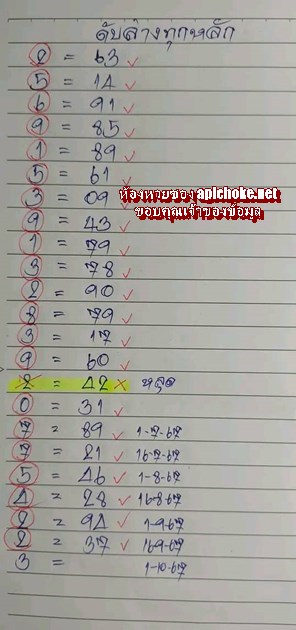 ดับล่างทุกหลัก
2 = 63 ✓
5 = 14 ✓
6 = 91 ✓
9 = 85 ✓
1 = 89 ✓
5 = 61 ✓
3 = 09 ✓
ห้องหวยซอง apichoke.net
ขอบคุณเจ้าของข้อมูล
9 = 43 ✓
1 = 79 ✓
3 = 78 ✓
2 = 90 ✓
8 = 79 ✓
3 = 17 ✓
9 = 60 ✓
2 = 42 × หลุด
0 = 31 ✓
7 = 89 ✓ 1-7-67
7 = 21 ✓ 16-7-67
5 = 46 ✓ 1-8-67
4 = 28 ✓ 16-8-67
2 = 94 ✓ 1-9-67
2 = 37 ✓ 16-9-67
3 = 1-10-67